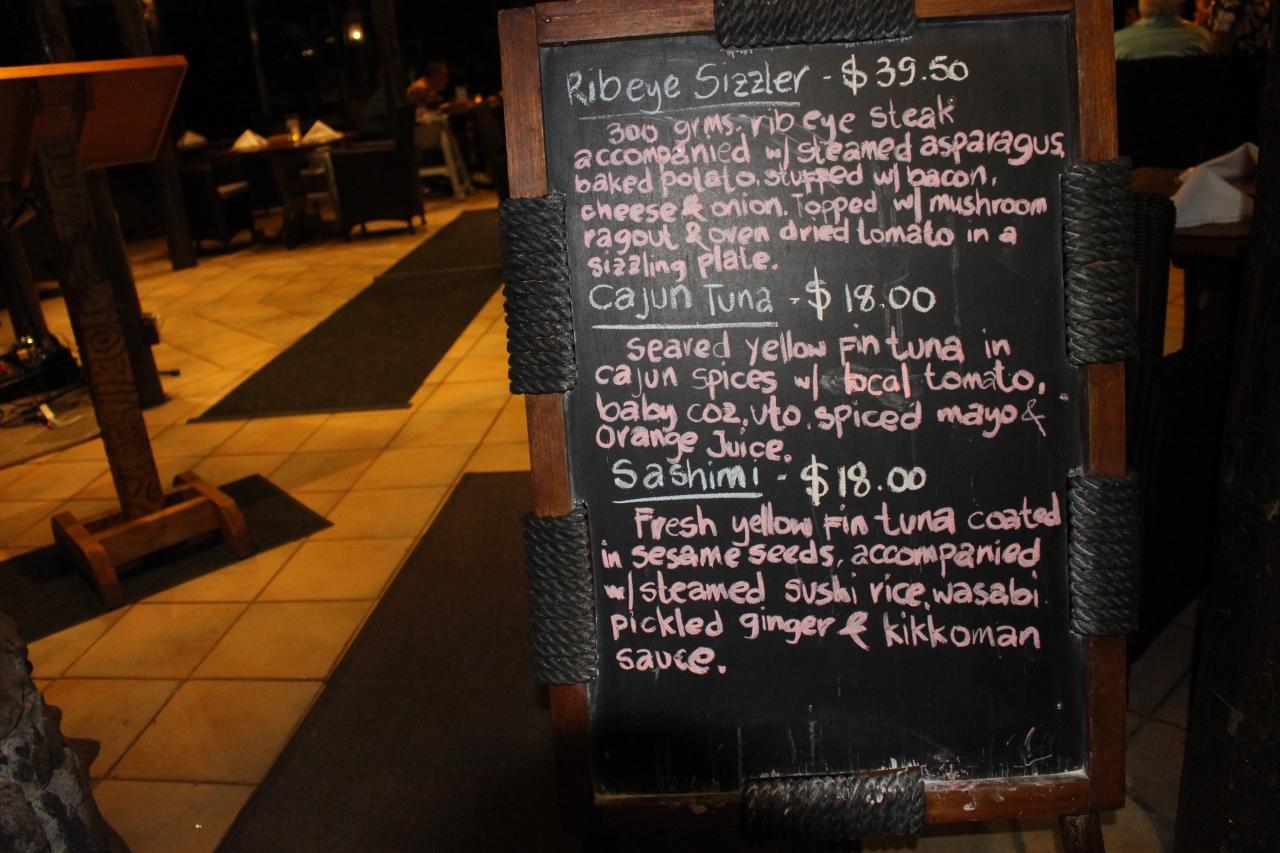 Ribeye Sizzler - $39.50
300 grms. rib eye steak
accompanied w/ steamed asparagus,
baked potato. stuffed w/ bacon,
cheese & onion. Topped w/ mushroom
ragout & oven dried tomato in a
sizzling plate.
Cajun Tuna - $18.00
Seared yellow Fin tuna in
cajun spices w/ local tomato,
baby coz, uto, spiced mayo &
Orange Juice.
Sashimi - $18.00
Fresh yellow Fin tuna coated
in sesame seeds, accompanied
w/ steamed sushi rice, wasabi
pickled ginger & kikkoman
sauce.